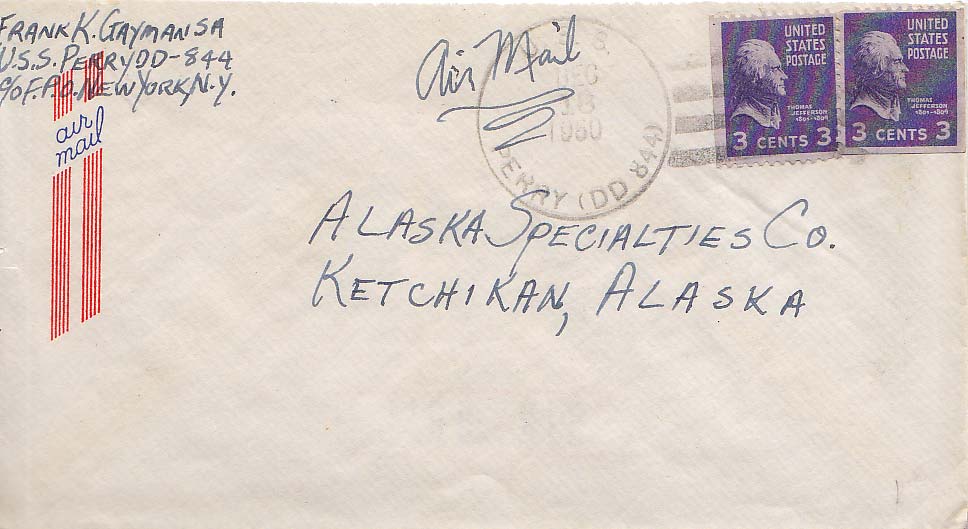 FRANK K. GAYMAN SA
U.S.S. PERRY DD-844
c/o F.P.O. NEW YORK, N.Y.
air
mail
Air Mail
U.S.S.
DEC
1960
PERRY (DD 844)
UNITED
STATES
POSTAGE
THOMAS
JEFFERSON
1801-1809
3 CENTS 3
UNITED
STATES
POSTAGE
THOMAS
JEFFERSON
1801-1809
3 CENTS 3
ALASKA SPECIALTIES CO.
KETCHIKAN, ALASKA